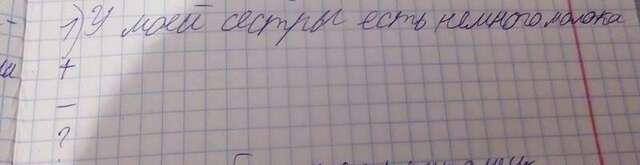 1) У моей сестры есть немного молока
+
-
?